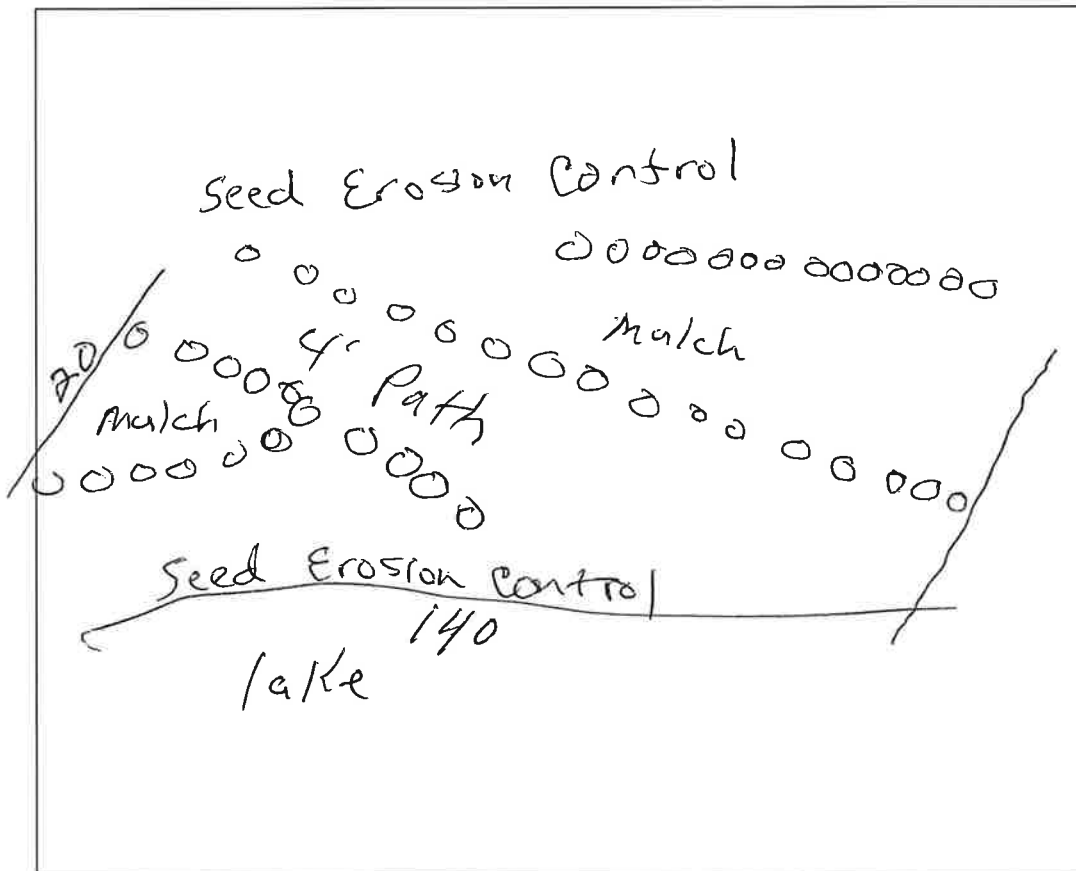 Seed Erosion Control
Mulch
20
4'
Path
Mulch
Seed Erosion Control
140
lake